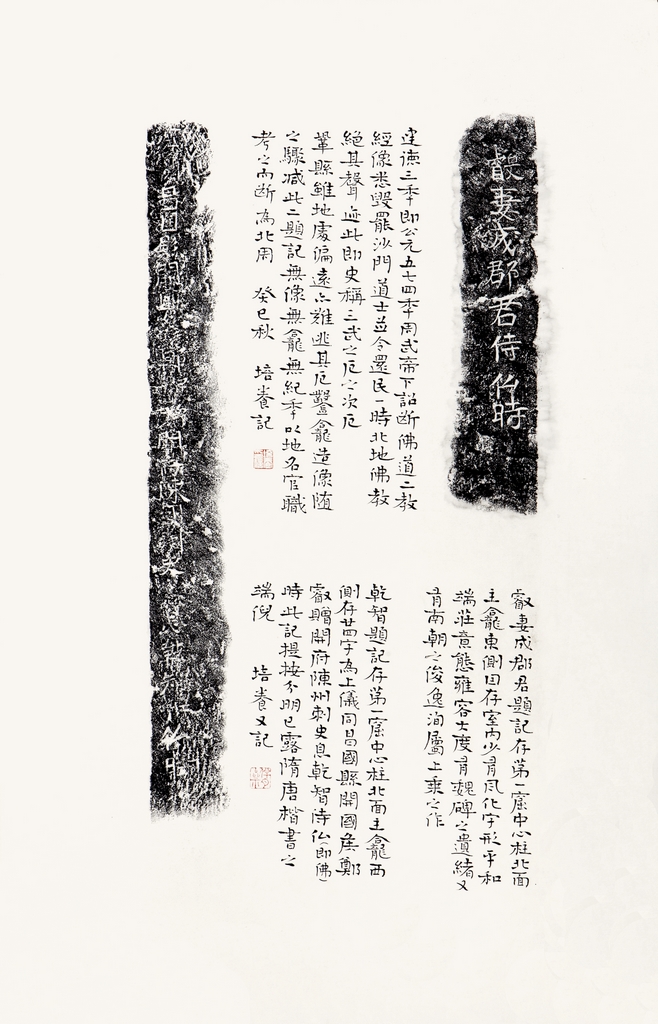 叡妻成郡君侍仏時
建德三年即公元五七四年周武帝下詔斷佛道二教
經像悉毀罷沙門道士並令還民一時北地佛教
絕其聲迹此即史稱三武之厄之次厄
鞏縣雖地處偏遠亦難逃其厄鑿龕造像随
之驟减此二題記無像無龕無紀年以地名官職
考之而斷為北周 癸巳秋 培養記
叡妻成郡君題記存第一窟中心柱北面
主龕東側因存室内少有風化字形平和
端莊意態雍容大度有魏碑之遺緒又
有南朝之俊逸洵屬上乘之作
乾智題記存第一窟中心柱北面主龕西
側存廿四字為上儀同昌國縣開國侯鄭
叡贈開府陳州刺史息乾智侍仏(即佛)
時此記提按分明已露隋唐楷書之
端倪 培養又記